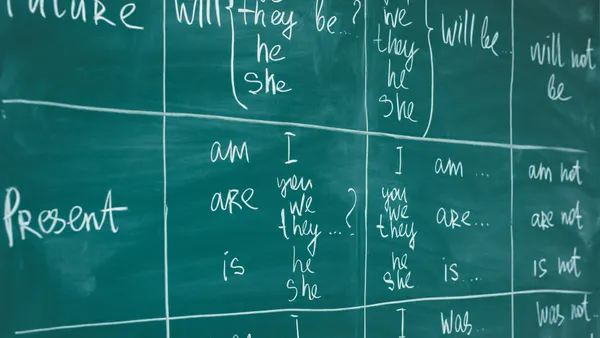 Future
will
they be..?
he
she
we
they
he
she
will be...
will not
be
Present
am I
are you
we
they...?
is he
she
I am ...
you
we
they
are...
he
she
is....
am not
are not
is not
I
I was..
was not..